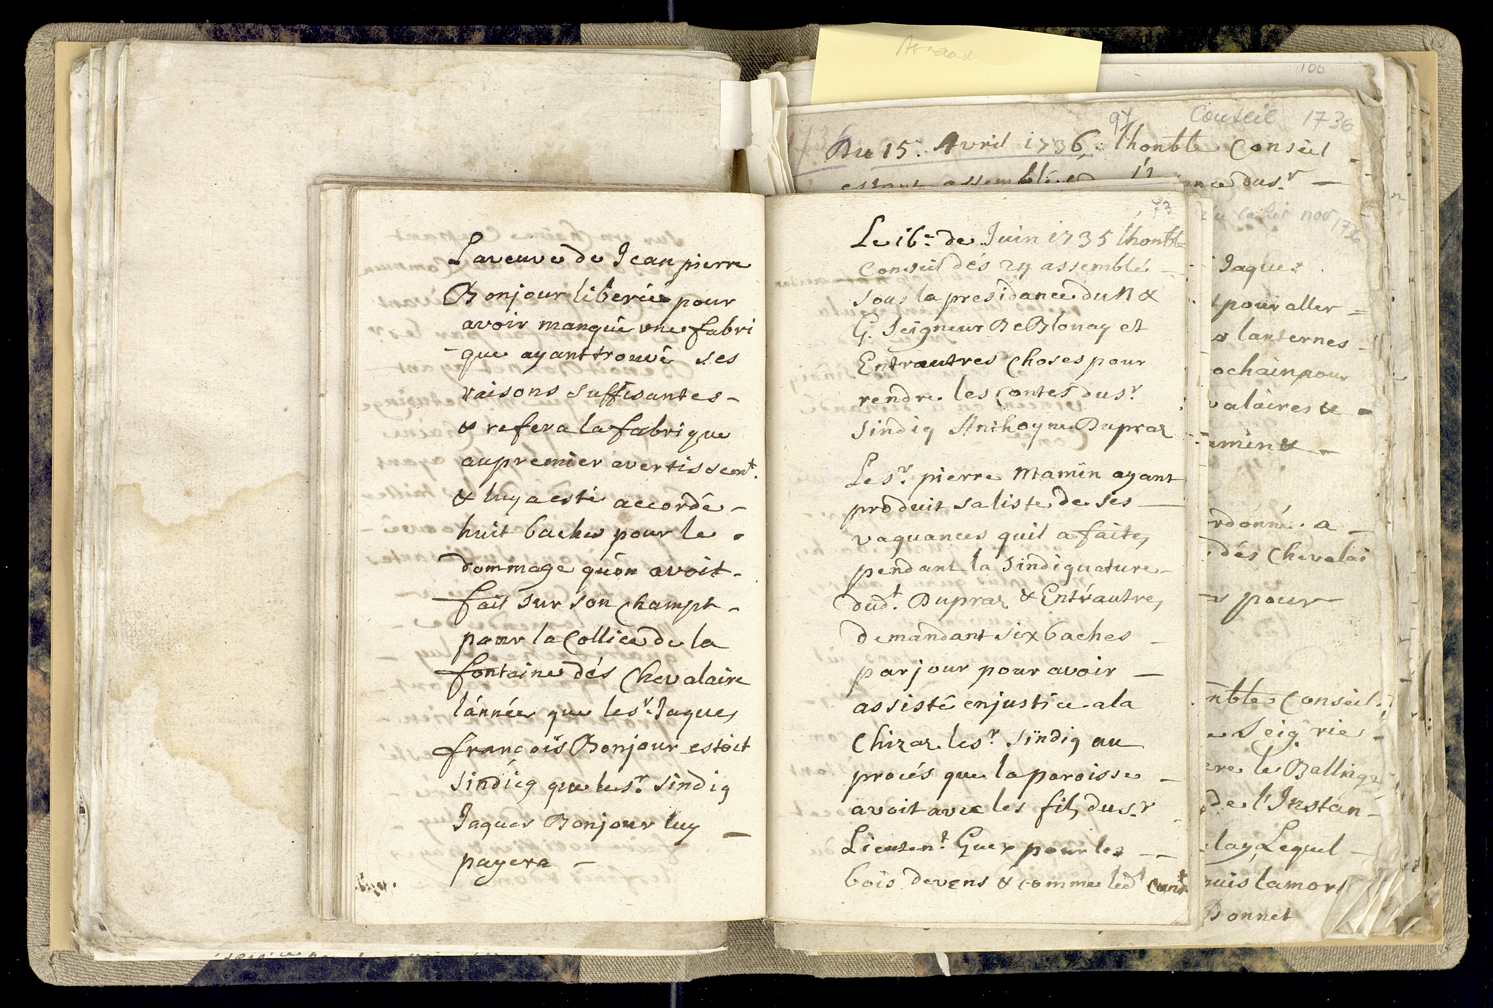 La veuve de Jean pierre
Bonjour liberée pour
avoir manqué une fabri
-que ayant trouvé ses
raisons suffisantes -
& refera la fabrique
au premier avertissemt.
& luy a esté accordé -
huit baches pour le
dommage qu'on avoit -
fait sur son champt -
pour la Collice de la
fontaine dés Chevalaire
l'année que le sr. Jaques
françois Bonjour estoit
Sindicq que le sr. Sindiq
Jaques Bonjour luy —
payera —
73
Le 16e. de Juin 1735 l'honble
Conseil dés 24 assemblé —
sous la presidance du N &
G. Seigneur De Blonay et
Entr'autres Choses pour
rendre les contes du sr
Sindiq Anthoyne Dupraz
Le sr. pierre Mamin ayant
produit sa liste de ses —
vaquances quil a faites,
pendant la Sindiquature -
dudt. Dupraz & Entr'autre,
demandant six baches —
par jour pour avoir —
assisté en justice a la
Chizaz le sr Sindiq au
procés que la paroisse —
avoit avec les fils du sr
Lieutent. Guex pour les —
bois devens & comme ledt
Arnaud
106
97 Conseil 1736
Du 15. Avril 1736. l'honble Conseil
estant assemblé
nov 1736
Jaques
pour aller =
lanternes -
ochain pour
valaires &
ordonné a —
dés Chevalai
pour
onble Conseil
Seigrie -
le Ballinge
de l'Instan-
Lequel —
puis lamort
Bonnet